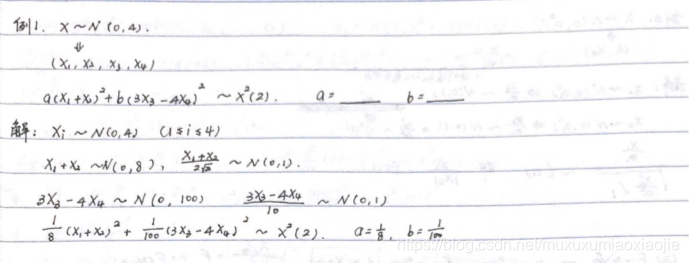 例1. X~N(0,4).
⇓
(X₁, X₂, X₃, X₄)
a(X₁+X₂)²+b(3X₃-4X₄)² ~ X²(2). a=____ b=____
解: Xᵢ ~ N(0,4) (1≤i≤4)
X₁+X₂ ~N(0,8), (X₁+X₂)/(2√2) ~ N(0,1).
3X₃-4X₄ ~ N(0,100) (3X₃-4X₄)/10 ~ N(0,1)
1/8(X₁+X₂)² + 1/100(3X₃-4X₄)² ~ X²(2). a=1/8, b=1/100
https://blog.csdn.net/muxuxumiaoxiaojie